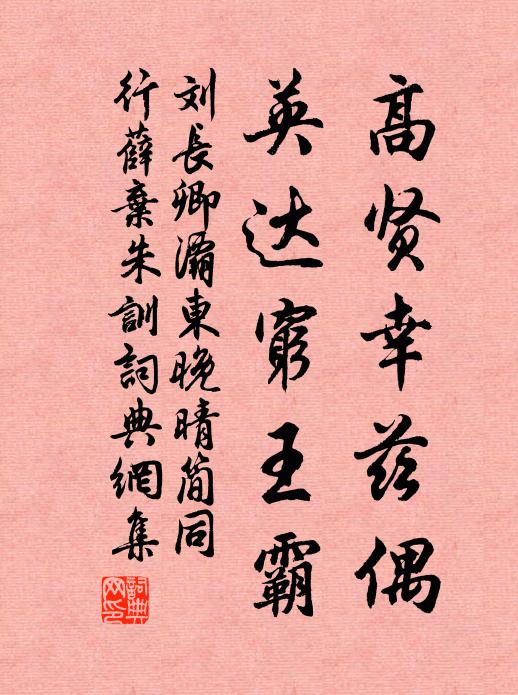 高贤幸兹偶
英达穷王霸
刘長卿灞東晚晴简同
行薛棄朱訓詞典網集
詞典网印